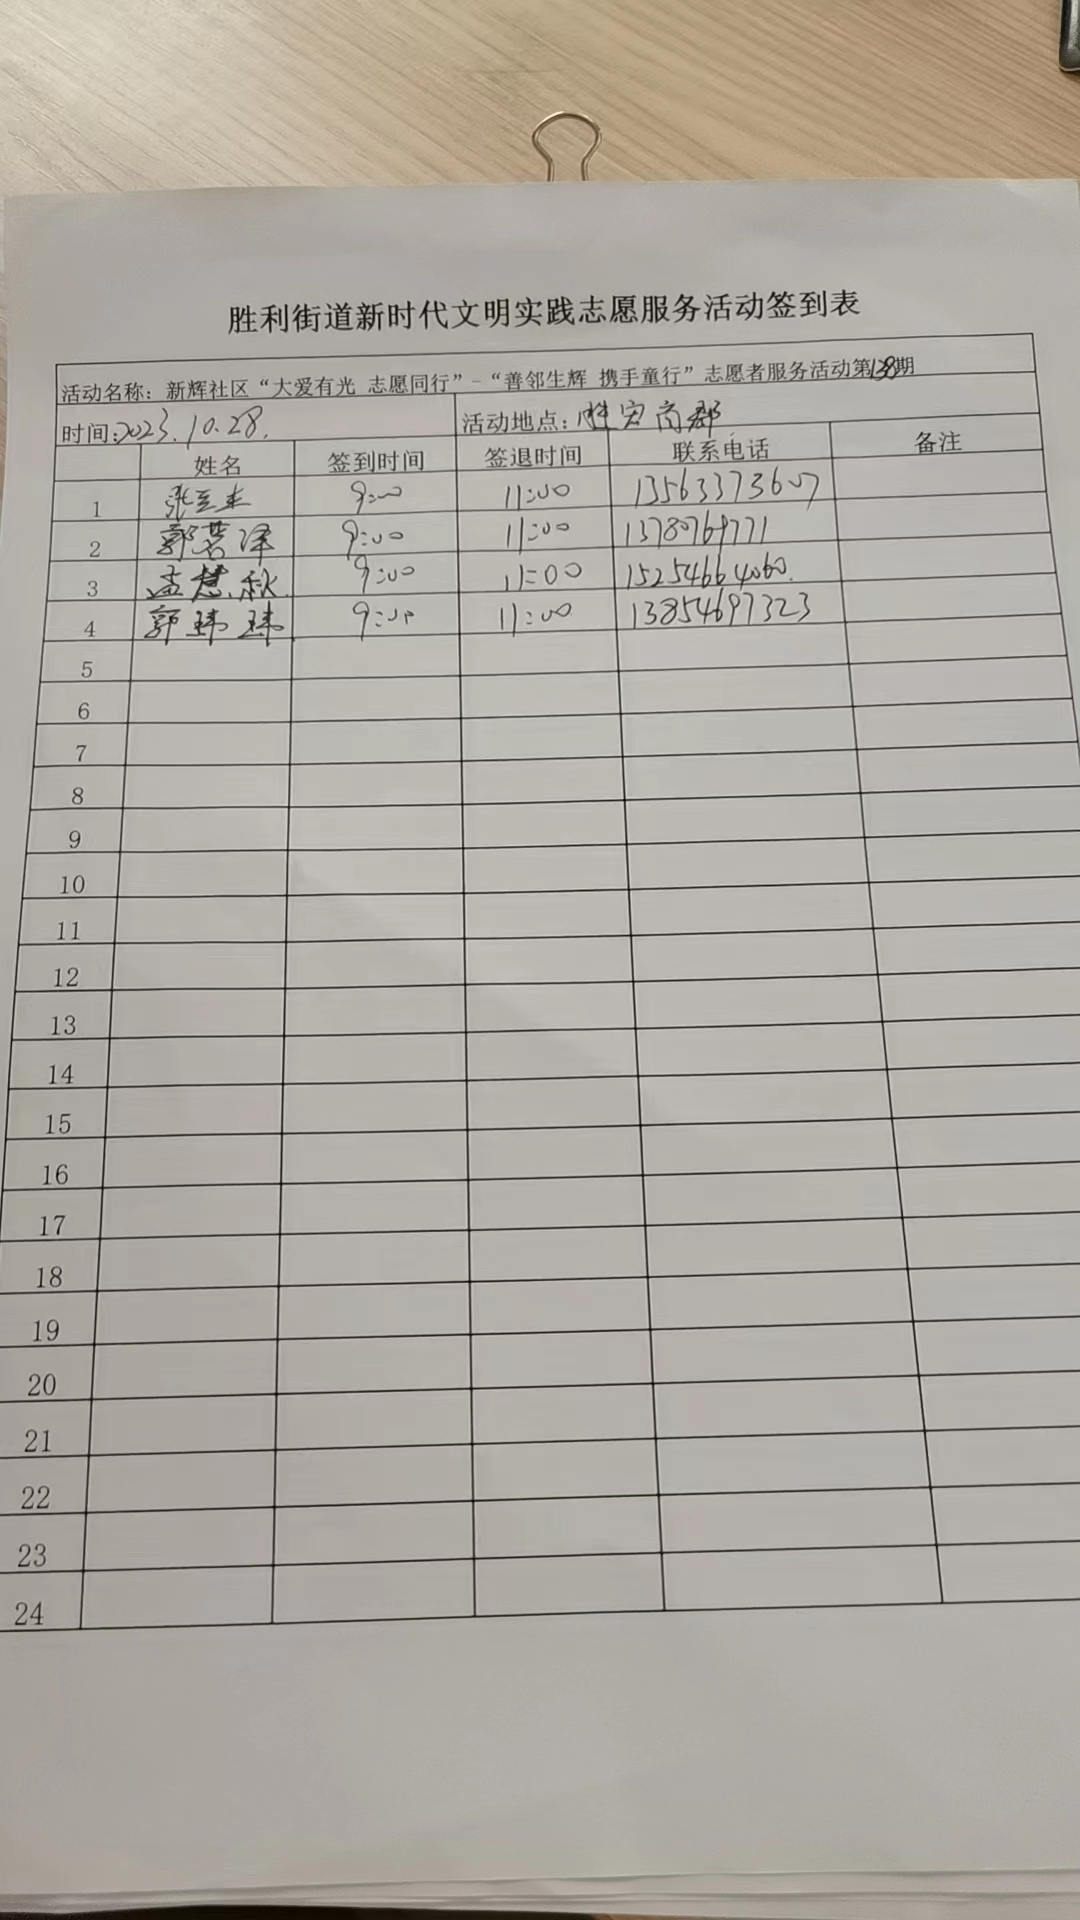 胜利街道新时代文明实践志愿服务活动签到表
活动名称：新辉社区“大爱有光 志愿同行”-“善邻生辉 携手童行”志愿者服务活动第138期
时间：2023.10.28. 活动地点：胜宏商都
姓名 签到时间 签退时间 联系电话 备注
1 9:00 11:00 13563373607
2 郭茗泽 9:00 11:00 13780769771
3 孟慧秋 9:00 11:00 15254664060
4 郭玮玮 9:00 11:00 13854697323
5
6
7
8
9
10
11
12
13
14
15
16
17
18
19
20
21
22
23
24